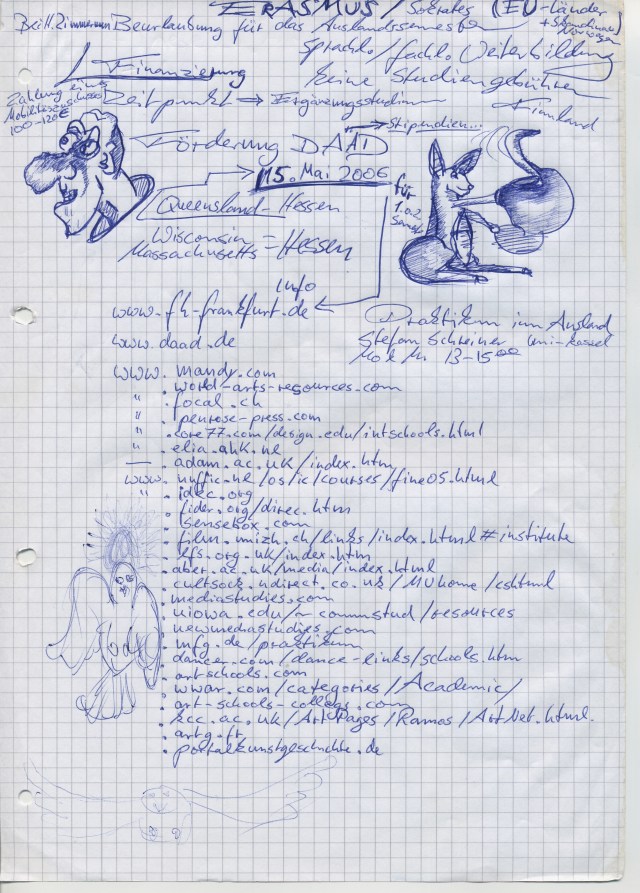 ERASMUS / Sokrates (EU-Länder
+ Skandinav. Norwegen
Beurlaubung für das Auslandssemester
Sprachl. / fachl. Weiterbildung
Finanzierung
keine Studiengebühren
Zahlung eines
Mobilitätszuschusses
100-120€
Zeitpunkt → Ergänzungsstudium
Finnland
Förderung DAAD
→ Stipendien...
15. Mai 2006
für
1. o. 2.
Semester
Queensland - Hessen
Wisconsin
Massachusetts = Hessen
Info
www.fh-frankfurt.de
www.daad.de
Praktikum im Ausland
Stefan Schreiner Uni-Kassel
Mo & Mi 13-15⁰⁰
www. mandy.com
. world-arts-resources.com
" . focal.ch
" . penrose-press.com
" . core77.com/design.edu/intschools.html
" . elia.ahk.nl
— . adam.ac.uk/index.htm
www. nuffic.nl/os/ic/courses/fine05.html
" . idec.org
. fider.org/direc.htm
. sensebox.com
. film.unizh.ch/links/index.html#institute
. lfs.org.uk/index.htm
. aber.ac.uk/media/index.html
. cultsock.ndirect.co.uk/MUHome/cshtml
. mediastudies.com
. uiowa.edu/~commstud/resources
. newmediastudies.com
. mfg.de/praktikum
. dancer.com/dance-links/schools.htm
. art-schools.com
. wwar.com/categories/Academic/
. art-schools-colleges.com
. kcc.ac.uk/ArtPages/Ramos/ArtNet.html.
. artg.fr
. portalkunstgeschichte.de